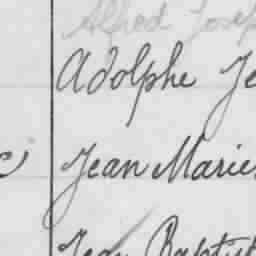 Alfred Josep
Adolphe Je
Jean Marie
Jean Baptist